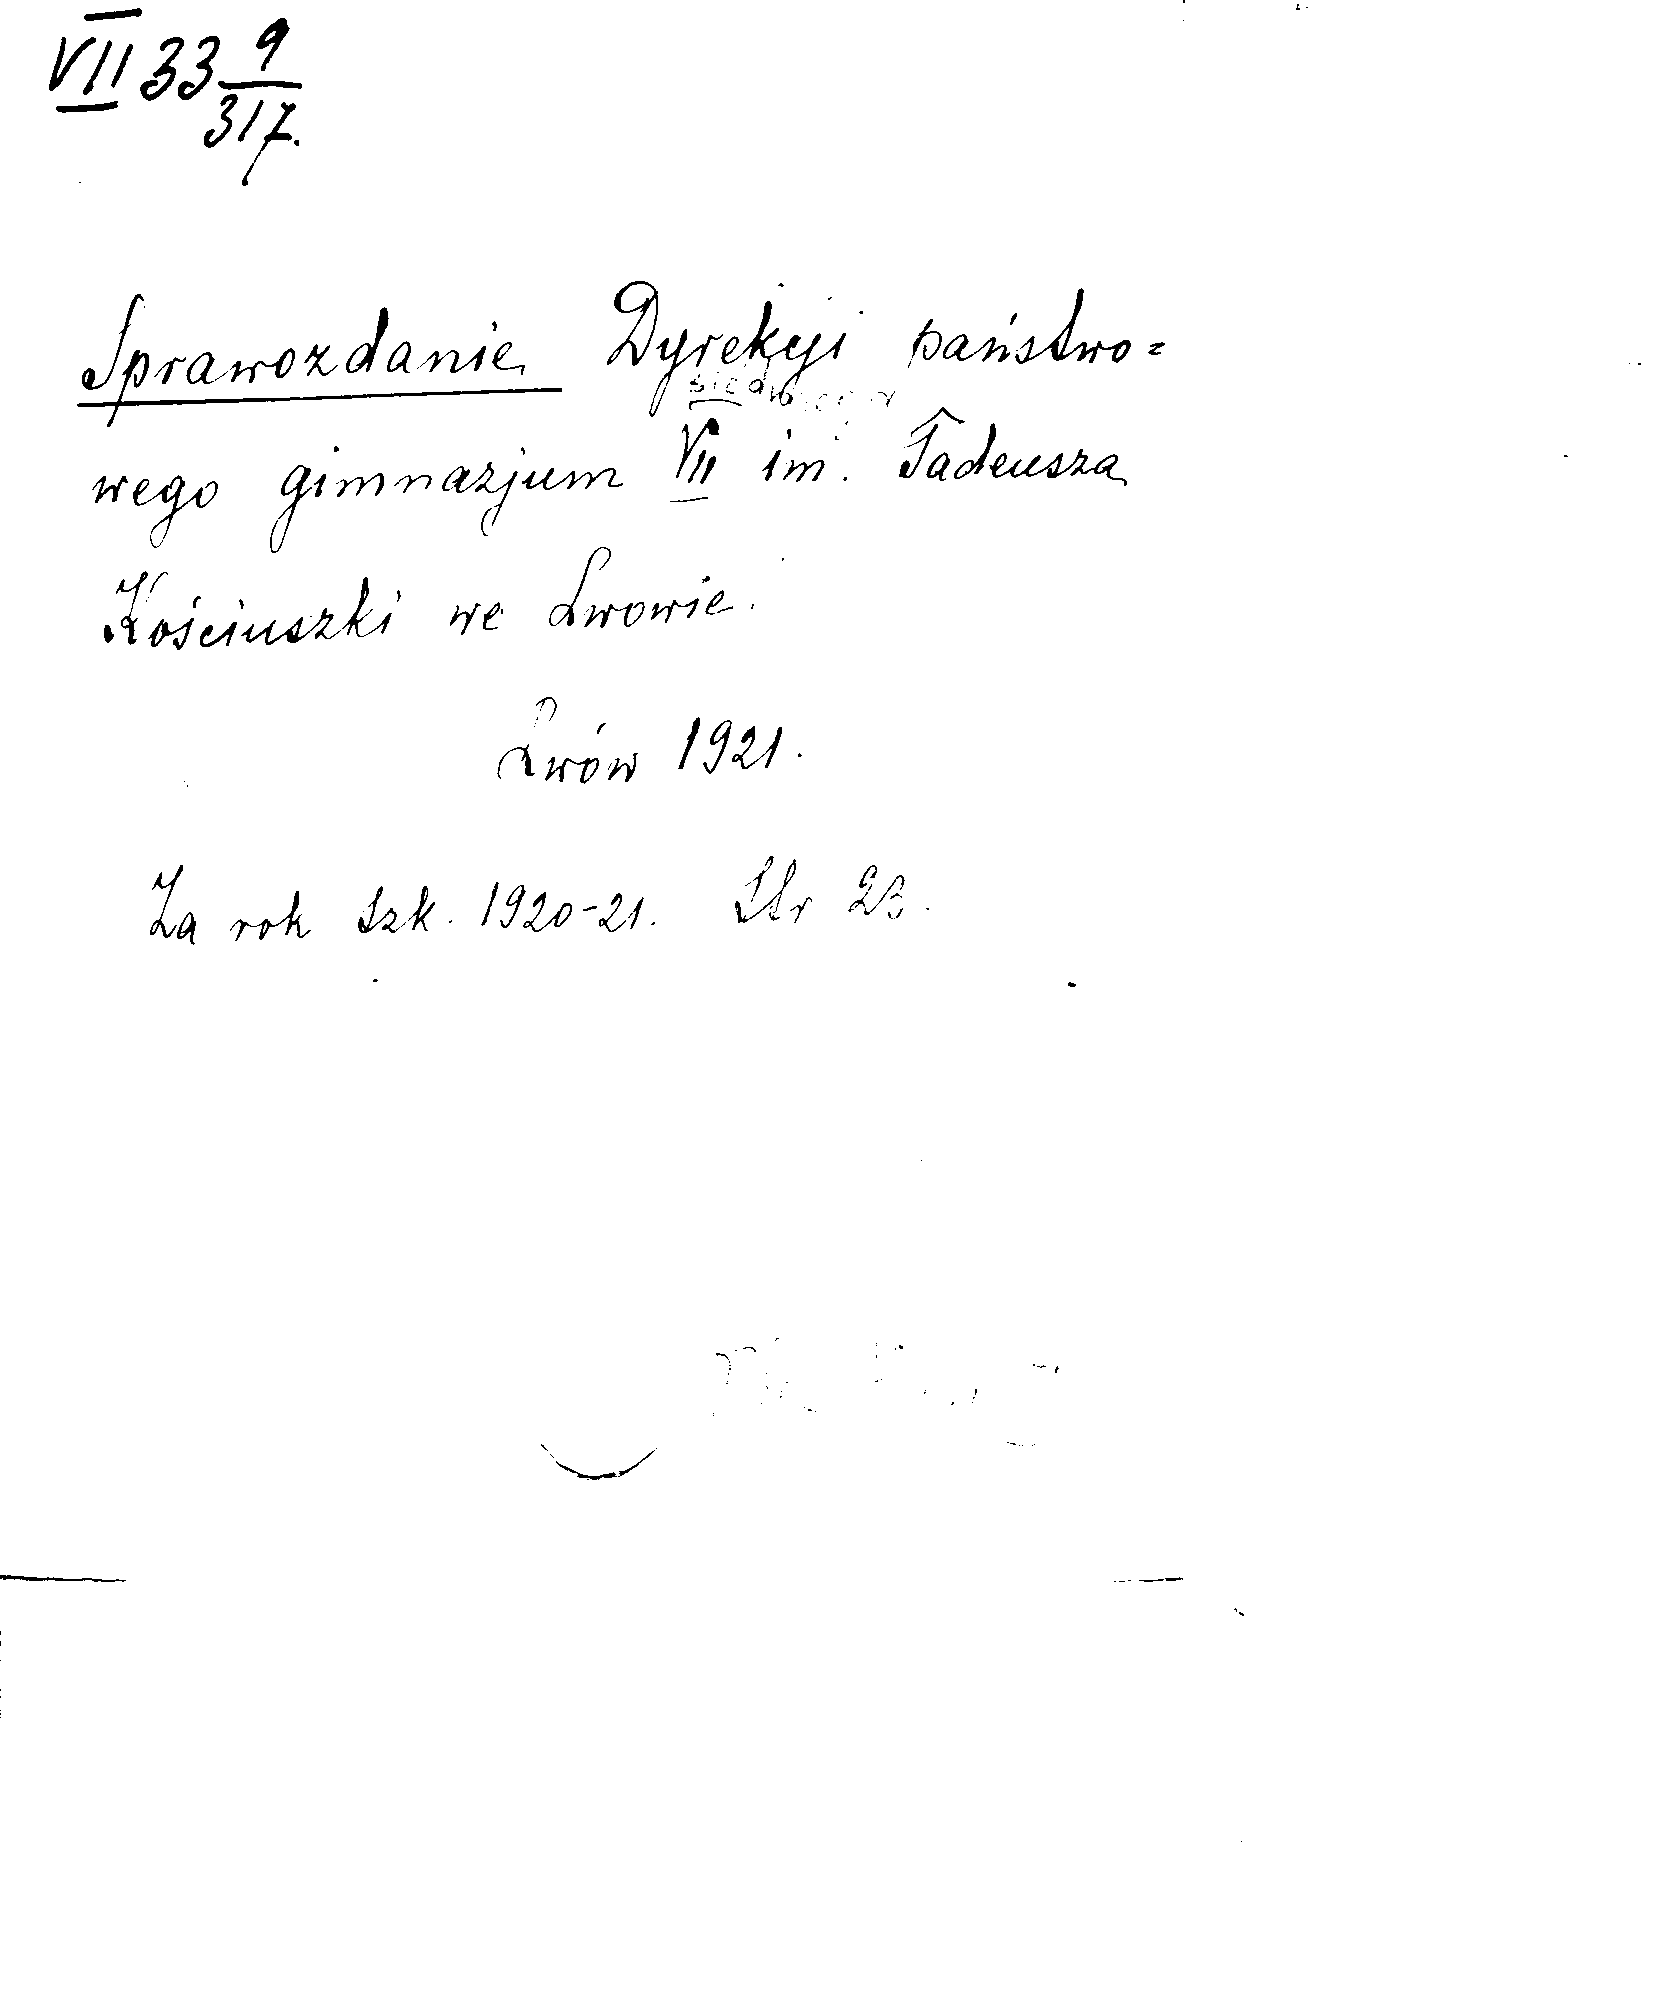 VII 33 9/317.
Sprawozdanie Dyrekcji państwo=
wego gimnazjum VII im. Tadeusza
Kościuszki we Lwowie.
Lwów 1921.
Za rok szk. 1920-21. Str 23.